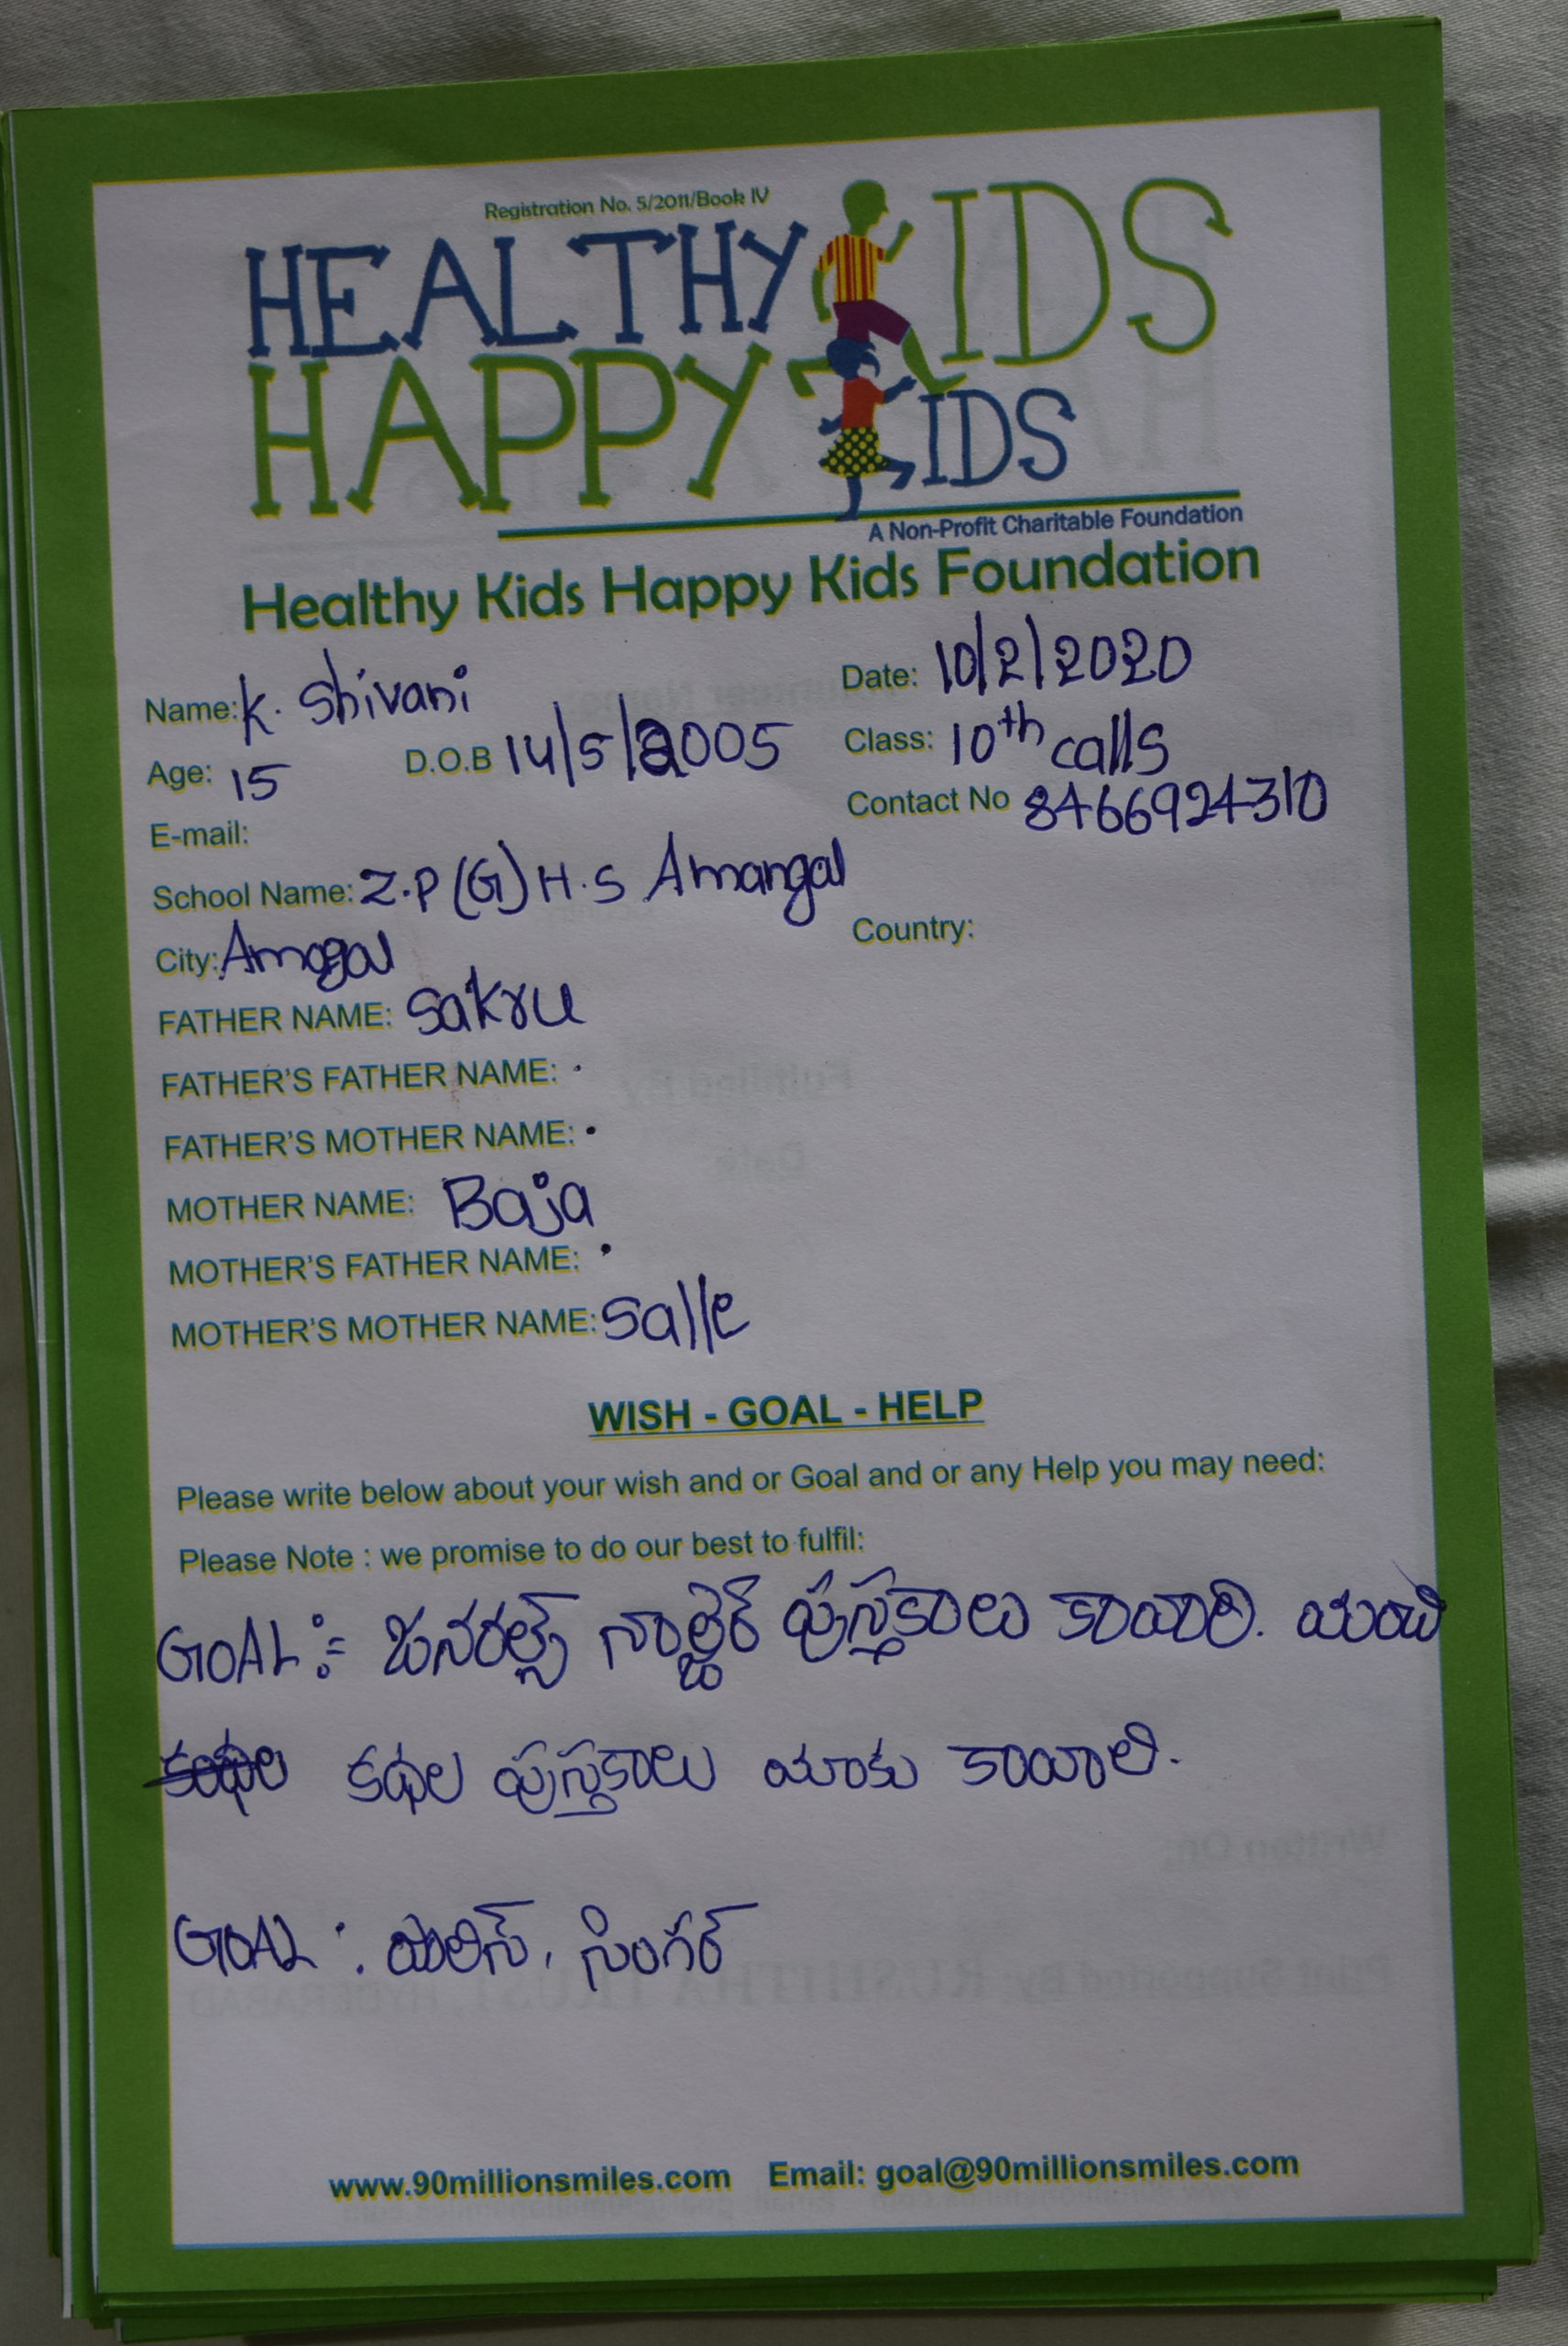 Registration No. 5/2011/Book IV
HEALTHY KIDS
HAPPY KIDS
A Non-Profit Charitable Foundation
Healthy Kids Happy Kids Foundation
Name: K. Shivani Date: 10/2/2020
Age: 15 D.O.B 14/5/2005 Class: 10th calls
E-mail: Contact No 8466924310
School Name: Z.P (G) H.S Amangal
City: Amagal Country:
FATHER NAME: Sakru
FATHER'S FATHER NAME:
FATHER'S MOTHER NAME:
MOTHER NAME: Baja
MOTHER'S FATHER NAME:
MOTHER'S MOTHER NAME: Salle
WISH - GOAL - HELP
Please write below about your wish and or Goal and or any Help you may need:
Please Note : we promise to do our best to fulfil:
GOAL :- పుస్తకాలు కావాలి. మంచి
కథల పుస్తకాలు మాకు కావాలి.
GOAL : పోలిస్, సింగర్
www.90millionsmiles.com Email: goal@90millionsmiles.com